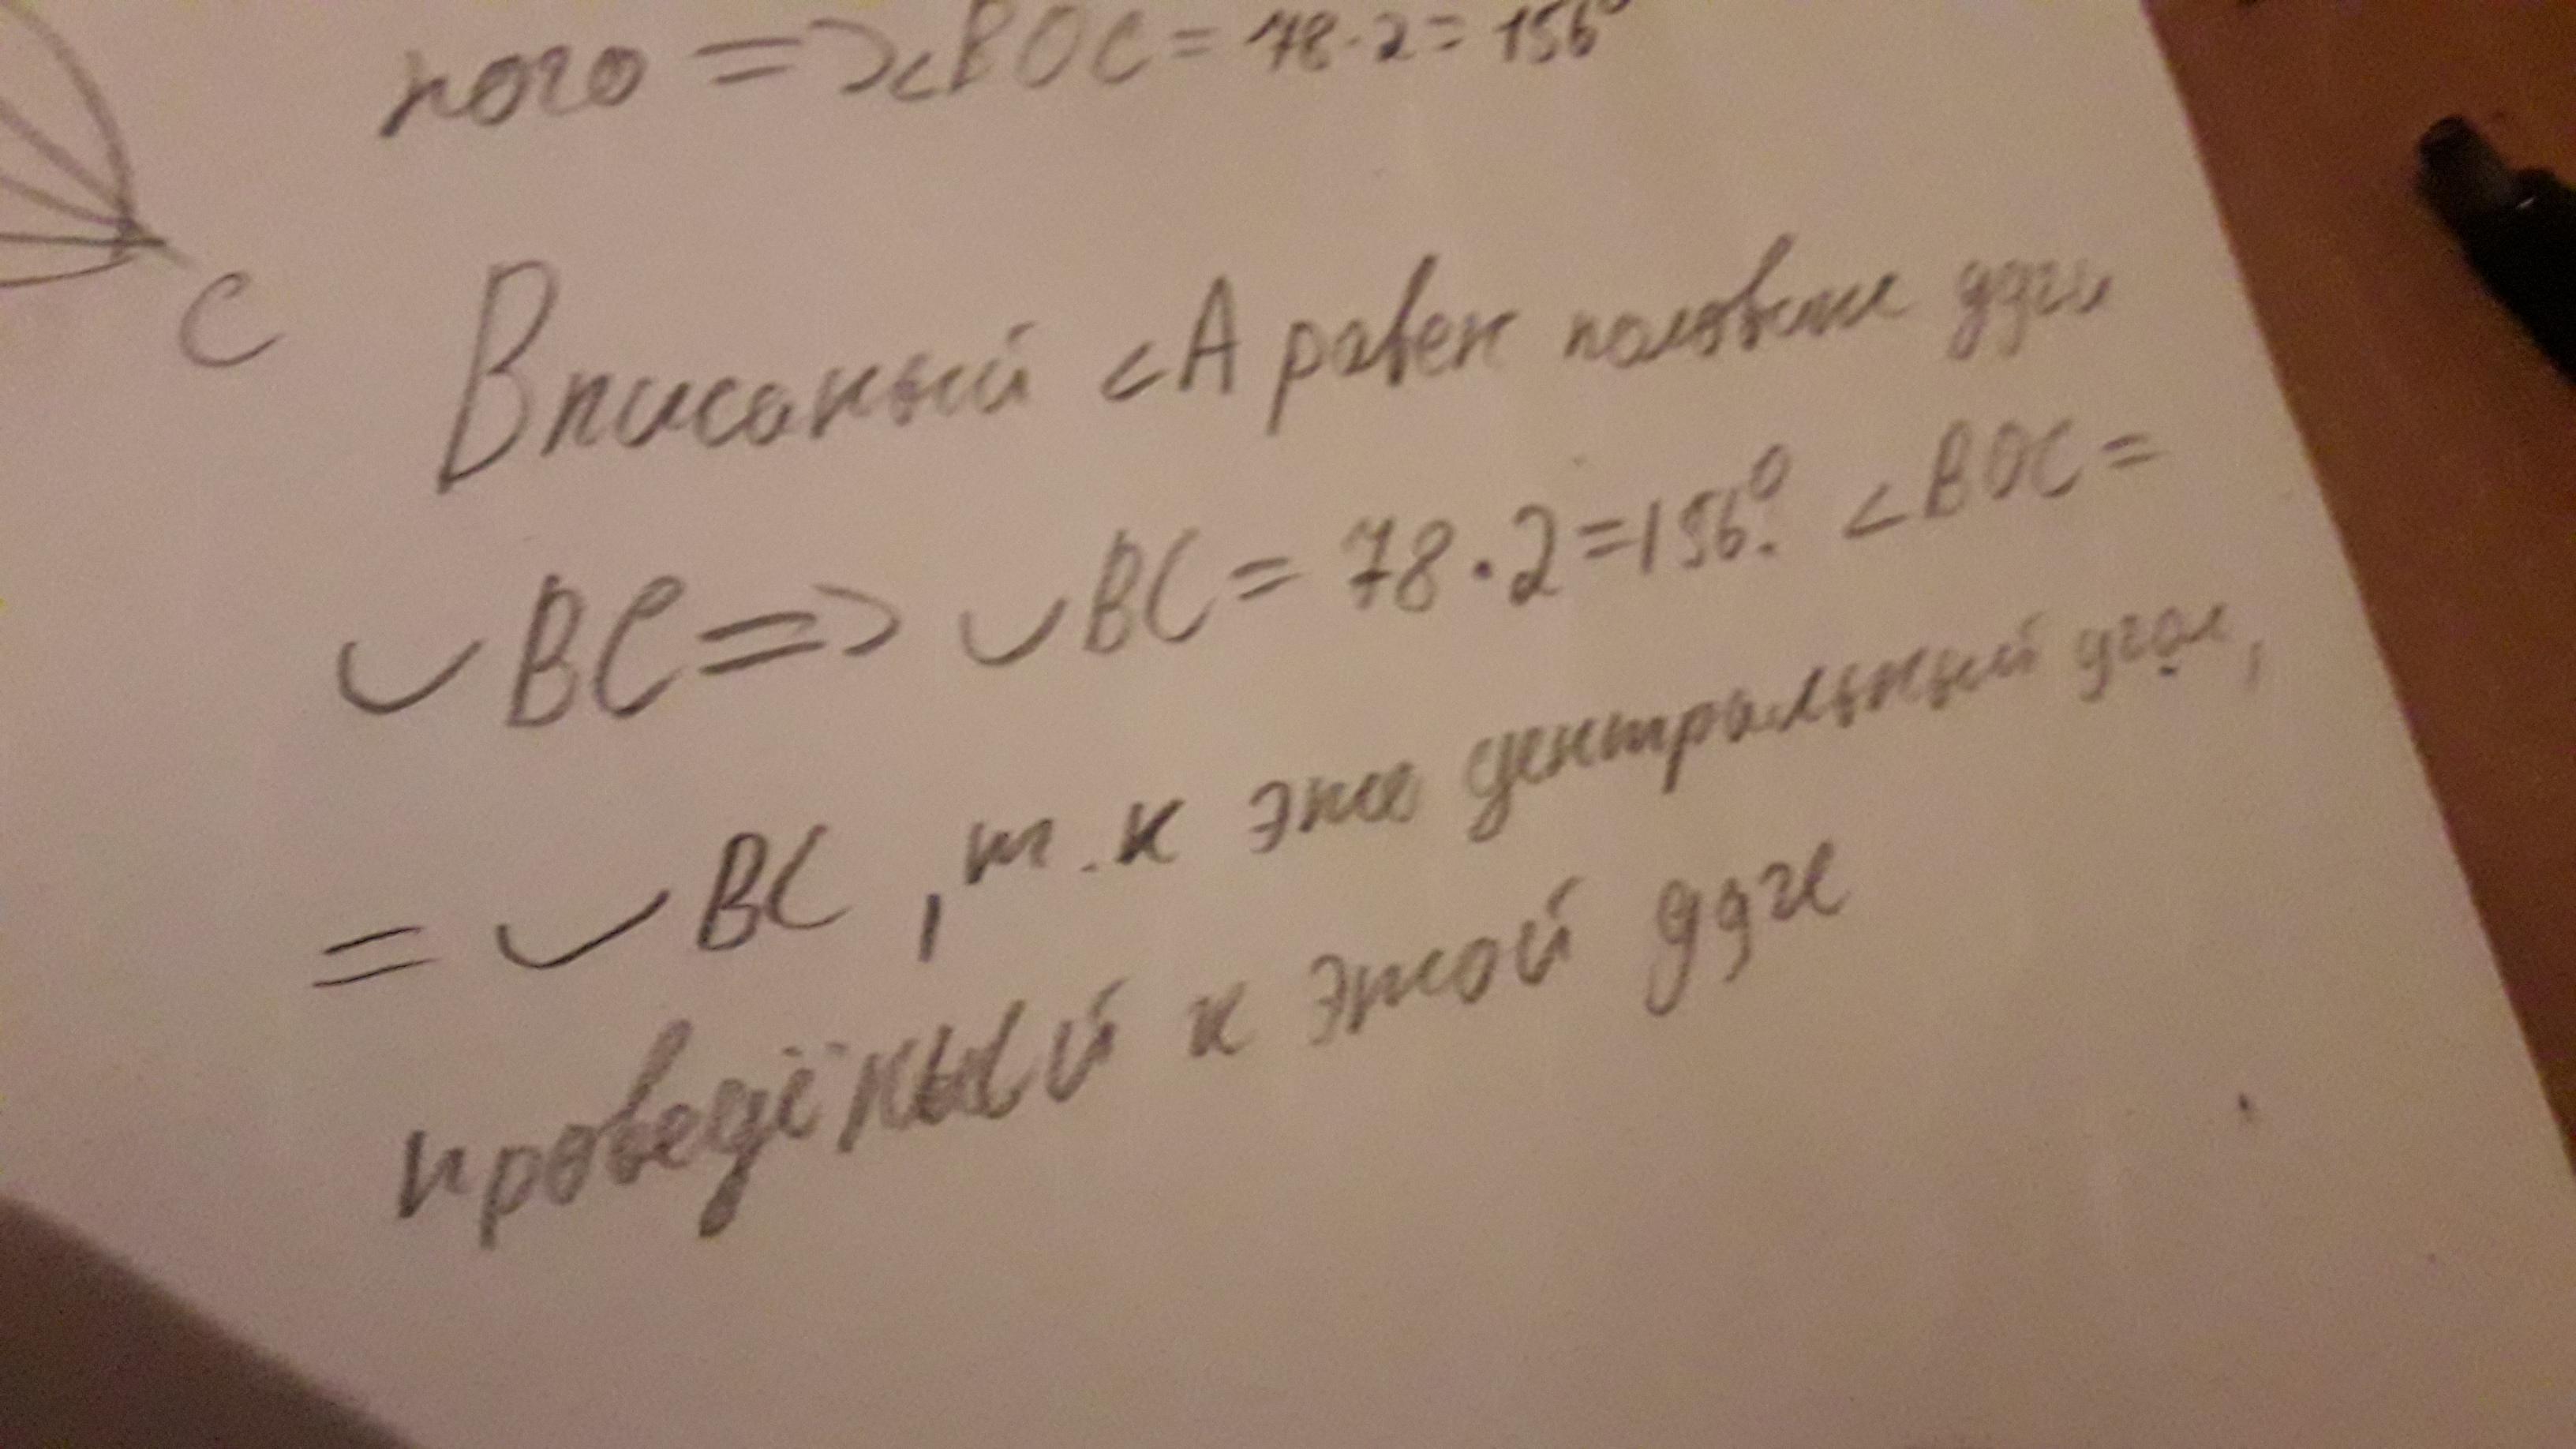 ного => <BOC = 78·2 = 156°
C
Вписаный <A равен половине дуги
◡BC => ◡BC = 78·2=156°. <BOC =
= ◡BC, т.к это центральный угол,
проведёный к этой дуге